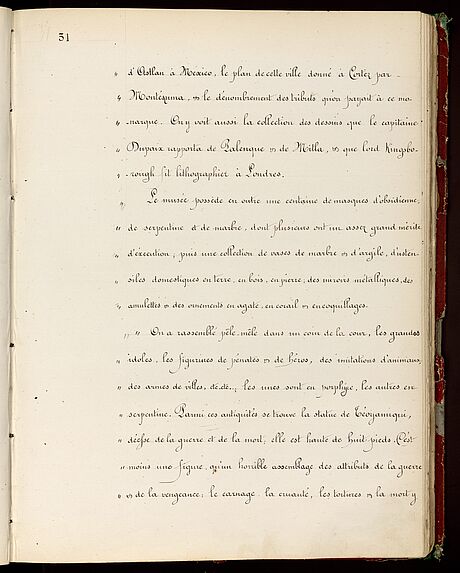 31
" d'Astlan à Mexico, le plan de cette ville donné à Cortéz par
" Montézuma, & le dénombrement des tributs qu'on payait à ce mo-
" narque. On y voit aussi la collection des dessins que le capitaine
" Dupaix rapporta de Palenque & de Mitla, & que lord Kingsbo-
" rough fit lithographier à Londres.
" Le musée possède en outre une centaine de masques d'obsidienne,
" de serpentine et de marbre, dont plusieurs ont un assez grand mérite
" d'exécution; puis une collection de vases de marbre & d'argile, d'usten-
" siles domestiques en terre, en bois, en pierre; des miroirs métalliques, des
" amulettes & des ornements en agate, en corail & en coquillages.
" " On a rassemblé pêle-mêle dans un coin de la cour, les grandes
" idoles, les figurines de pénates & de héros, des imitations d'animaux,
" des armes de villes, etc. etc.., les unes sont en porphyre, les autres en
" serpentine. Parmi ces antiquités se trouve la statue de Téoyamiqui,
" déesse de la guerre et de la mort, elle est haute de huit pieds. C'est
" moins une figure, qu'un horrible assemblage des attributs de la guerre
" & de la vengeance; le carnage, la cruauté, les tortures & la mort y